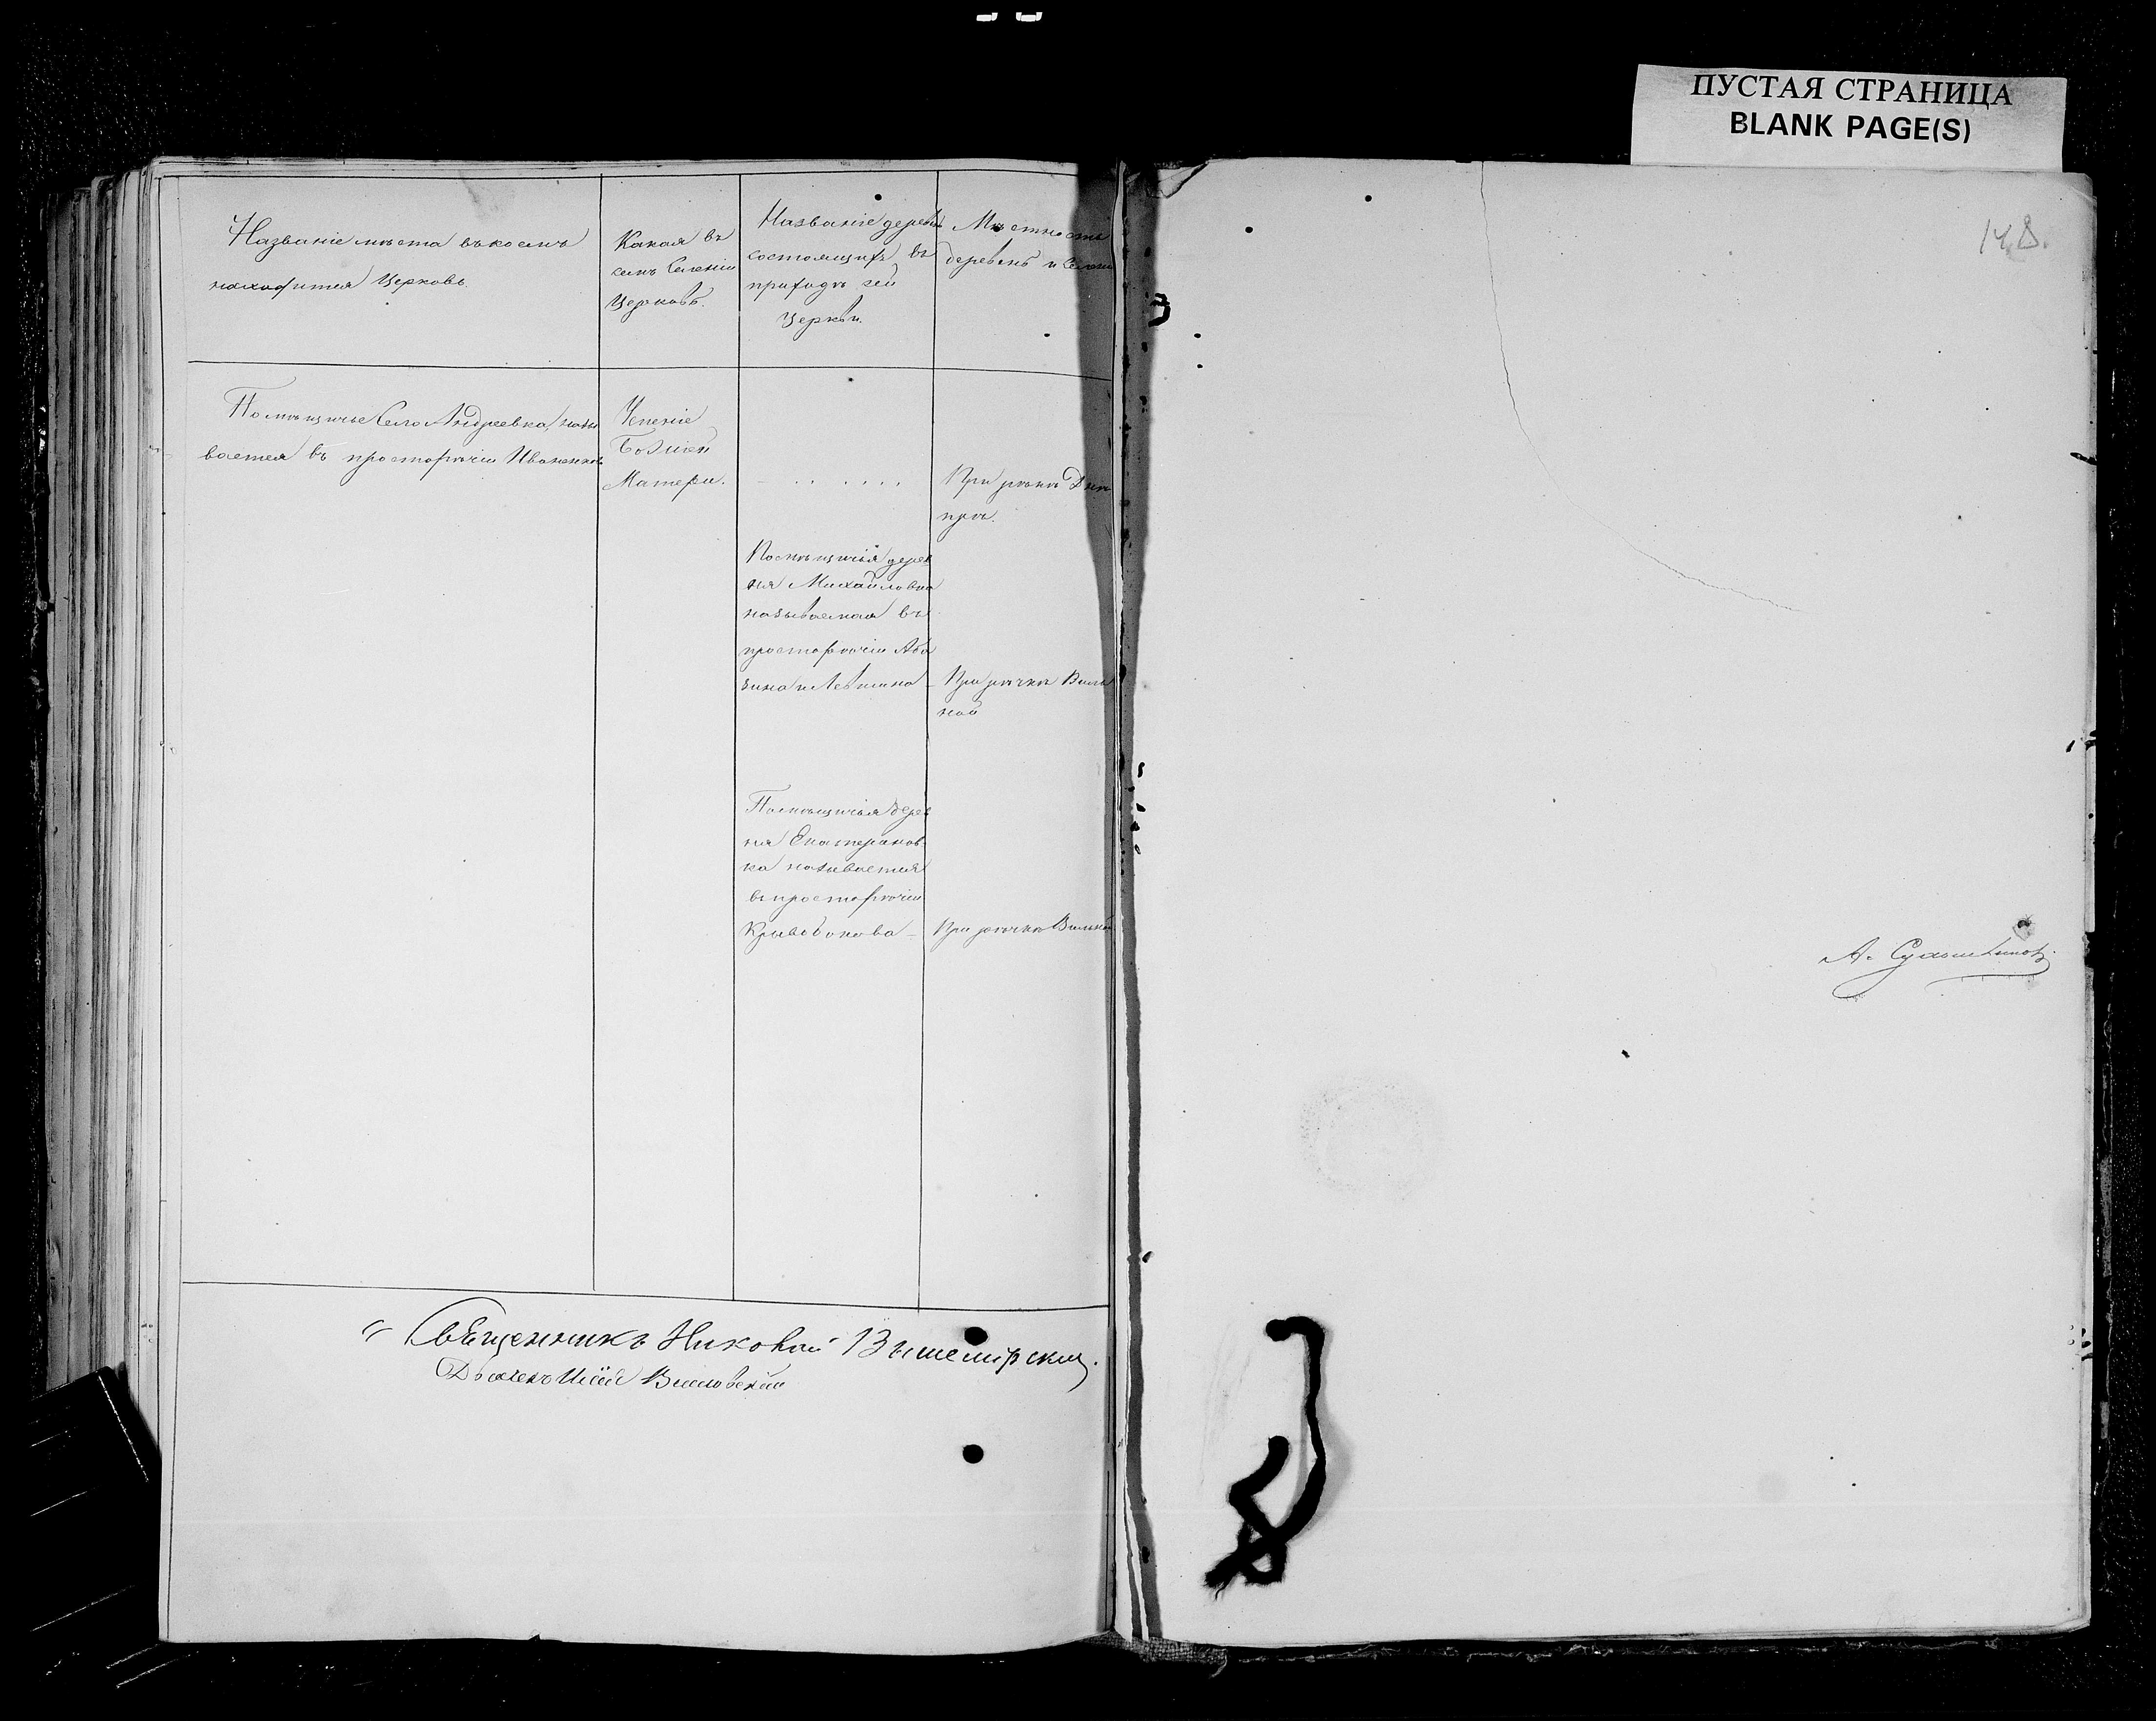 ПУСТАЯ СТРАНИЦА
BLANK PAGE(S)
Названіе мѣста въ коемъ
находится Церковь
Какая въ
семъ Селеніи
Церковь.
Названіе деревень
состоящихъ въ
приходѣ сей
Церкви.
Мѣстность
деревень и Селеній
Помѣщичье Село Андреевка, назы
вается въ просторѣчіи Иваненков
Успеніе
Божіей
Матери.
При рѣкѣ Днѣ
прѣ.
Помѣщичья дерев
ня Михайловка
называемая въ
просторѣчіи Аба
зина и Левшина
При рѣчкѣ Виль
ной
Помѣщичья дерев
ня Екатеринов
ка называется
въ просторѣчіи
Кривобокова
При рѣчкѣ Вильной
Священникъ Николай Вышемірскій.
Дьячекъ
148.
А.